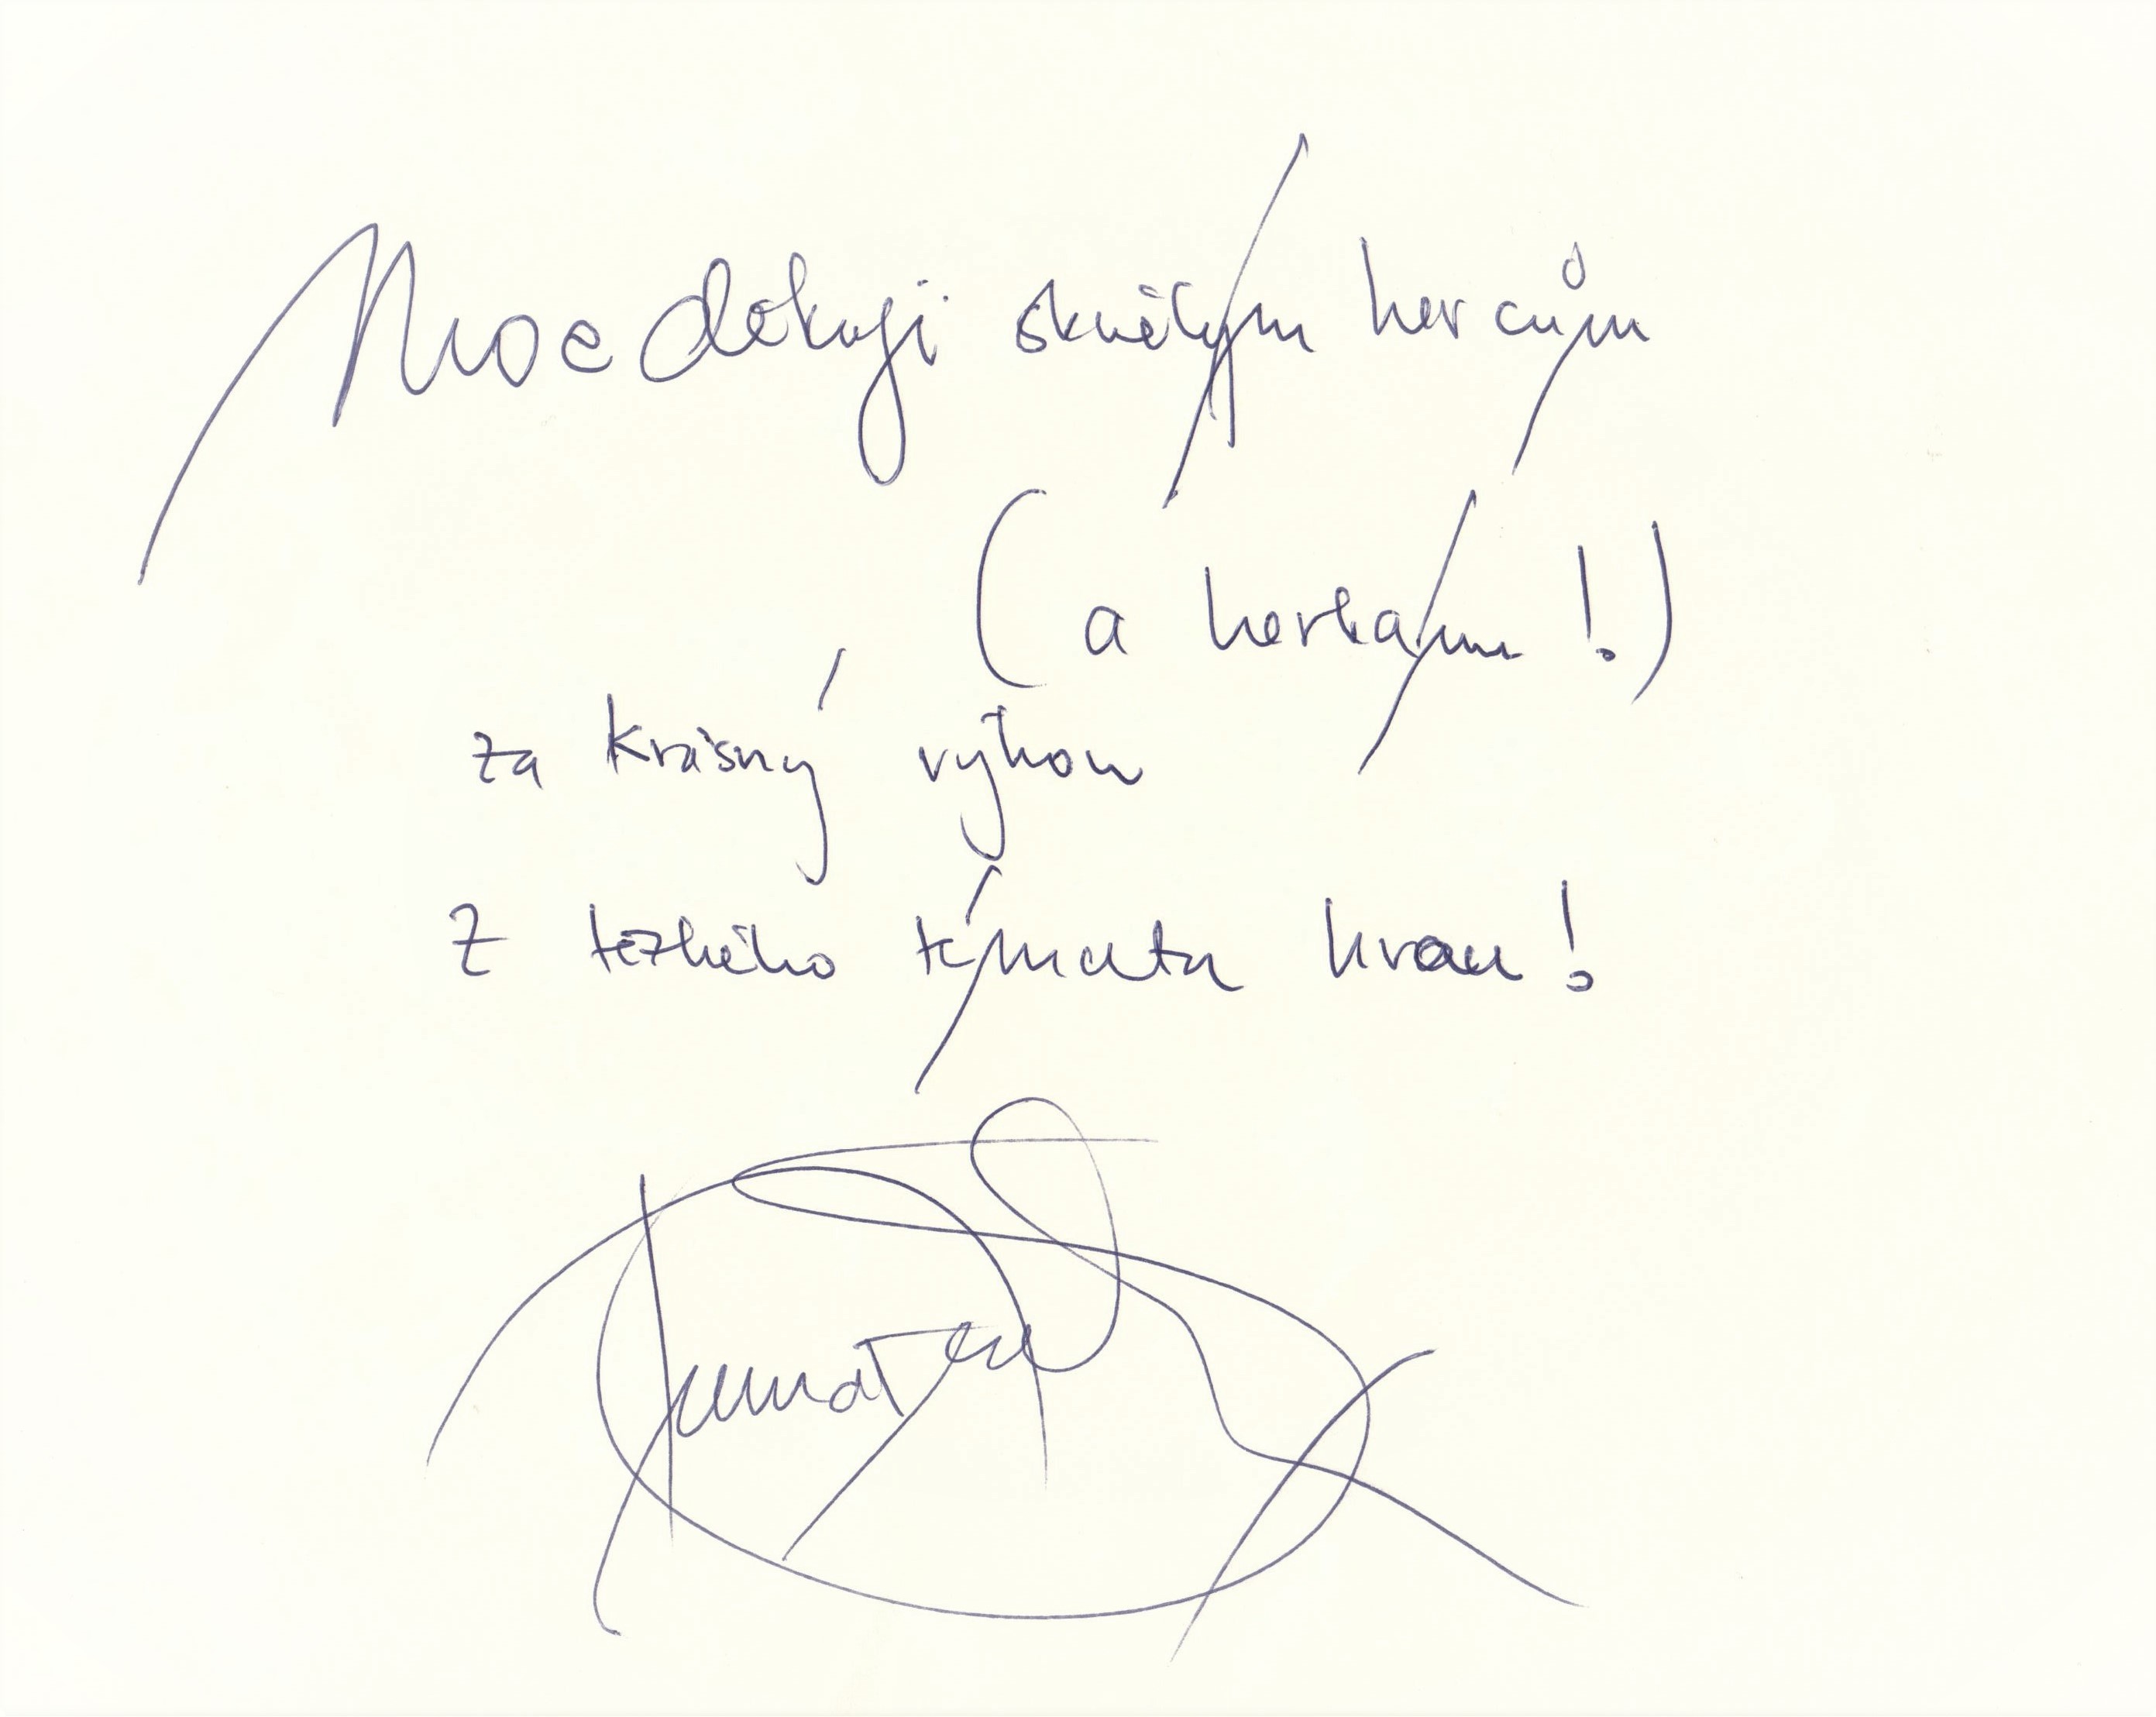 Moc děkuji skvělým hercům
(a herkám!)
za krásný výkon
z těžkého tématu hrou!